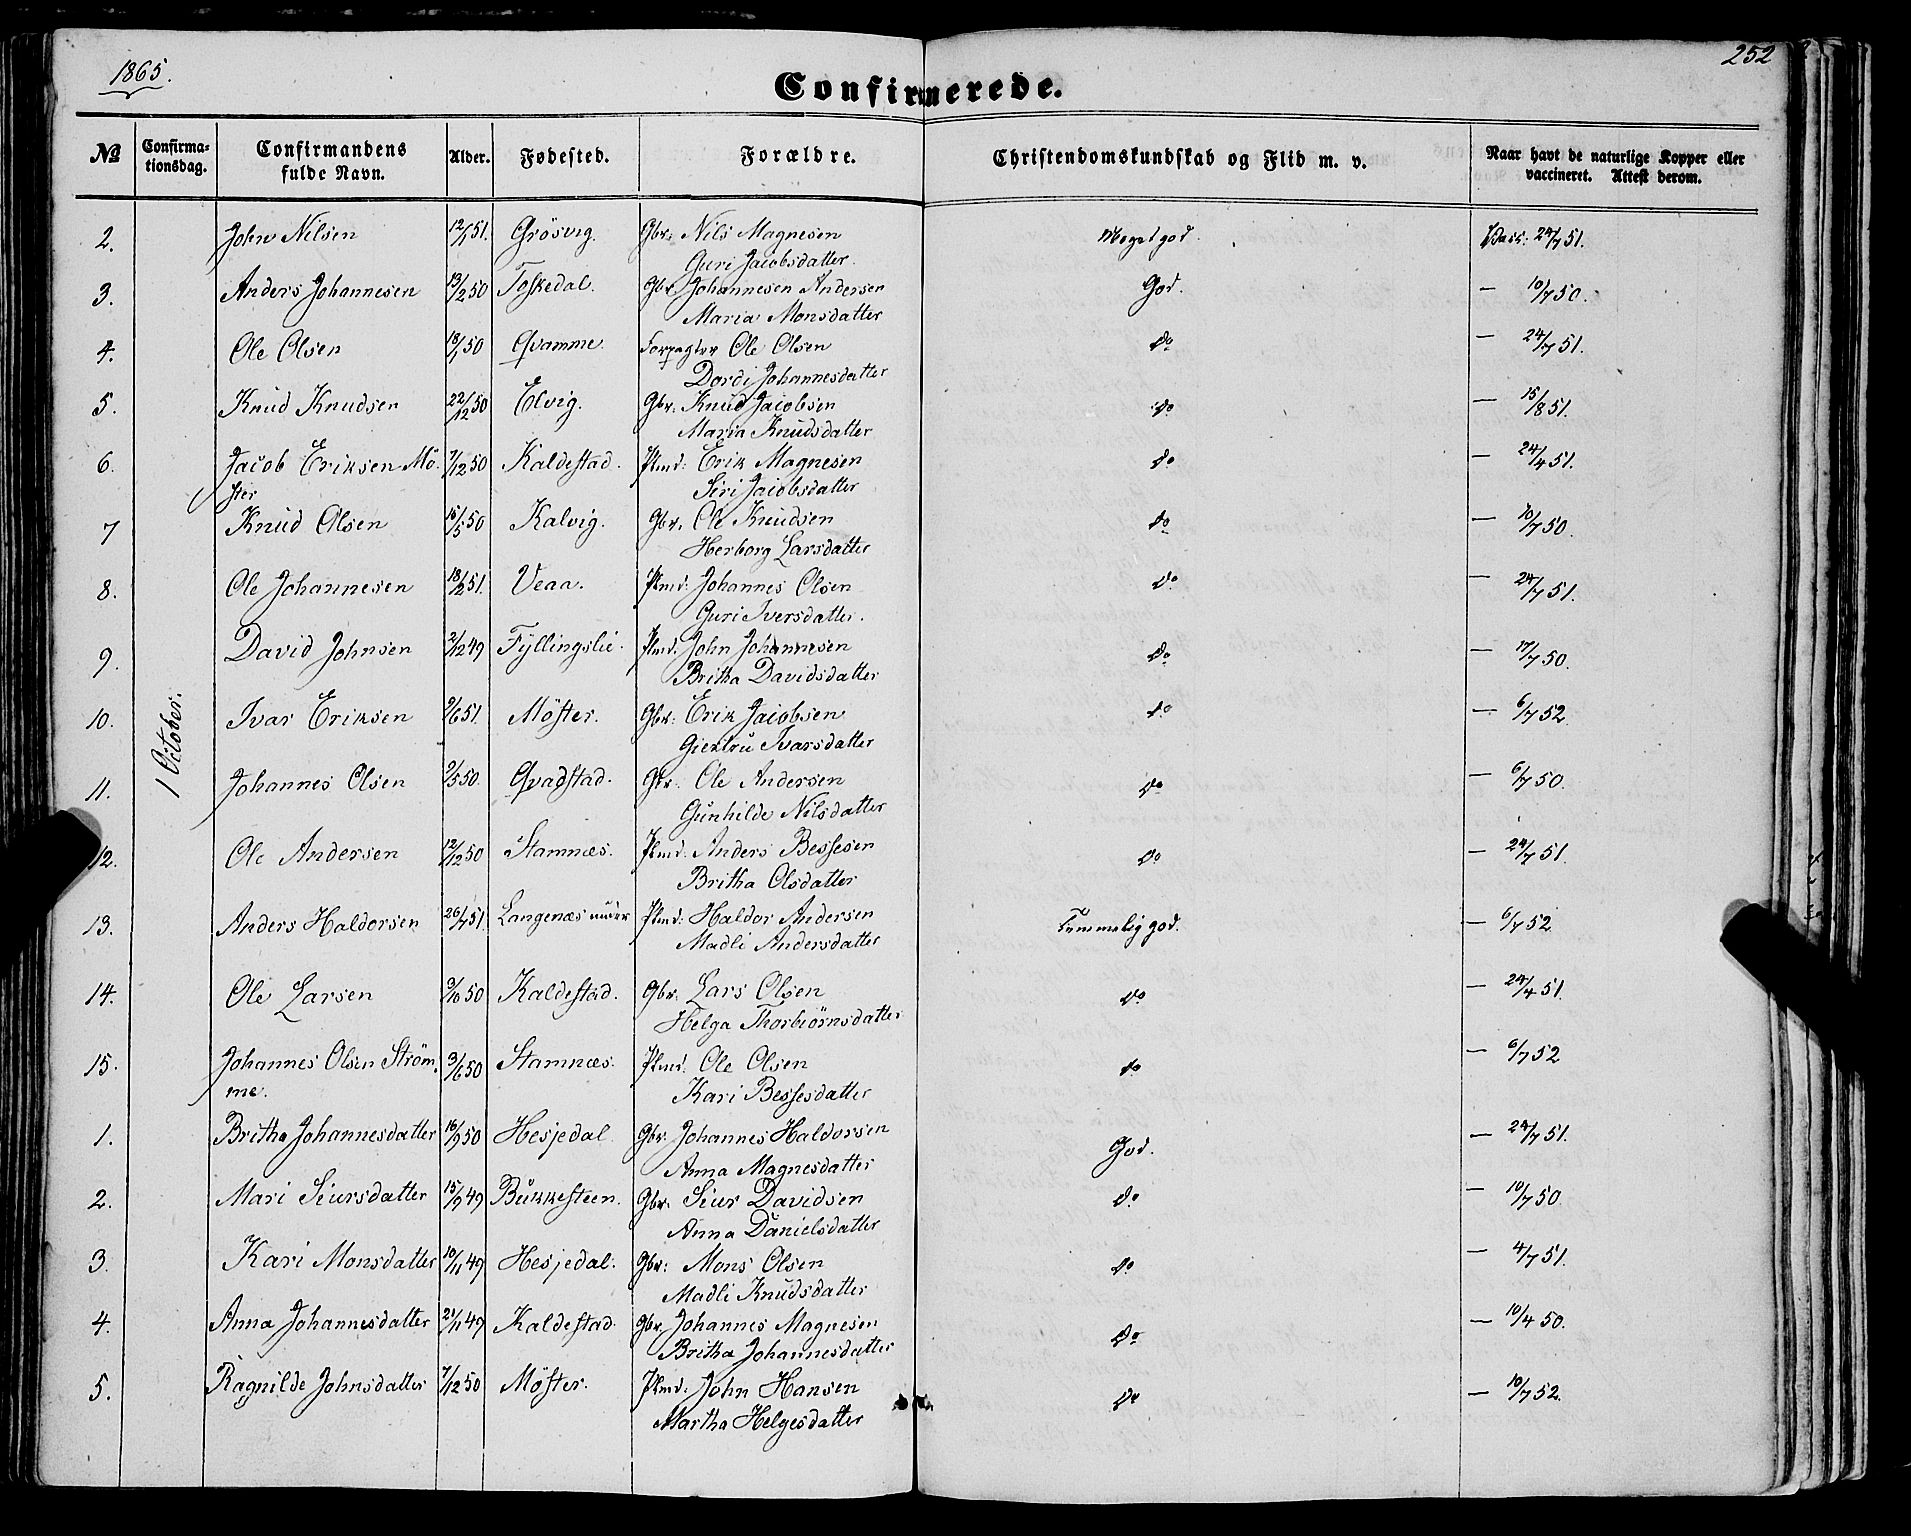 1865.
252
Confirmerede.
№ Confirma-tionsdag. Confirmandens fulde Navn. Alder. Fødested. Forældre. Christendomskundskab og Flid m. v. Naar havt de naturlige Kopper eller vaccineret. Attest derom.
1 October.
2. John Nilsen 12/1 51. Grösvig. Gbr: Nils Magnesen Meget god. Vacc: 24/7 51.
Guri Jacobsdatter.
3. Anders Johannesen 13/2 50 Toskedal. Gbr. Johannesen Andersen God. — 10/7 50.
Maria Monsdatter
4. Ole Olsen 18/1 50 Qvamme. Forpagter Ole Olsen do — 24/7 51.
Dordi Johannesdatter
5. Knud Knudsen 22/12 50 Elvig. Gbr: Knud Jacobsen do — 15/8 51.
Maria Knudsdatter
6. Jacob Eriksen Mö- 7/12 50 Kaldestad. Plmd: Erik Magnesen do — 24/4 51.
ster Siri Jacobsdatter
7 Knud Olsen 15/5 50 Kalvig. Gbr. Ole Knudsen do — 10/7 50.
Herborg Larsdatter
8. Ole Johannesen 18/2 51. Veaa. Plmd: Johannes Olsen do — 24/7 51.
Guri Iversdatter.
9. David Johnsen 2/12 49 Fyllingslie. Plmd: John Johannesen do — 17/7 50.
Britha Davidsdatter
10. Ivar Eriksen 9/6 51. Möster. Gbr: Erik Jacobsen do — 6/7 52.
Giertru Ivarsdatter
11. Johannes Olsen 9/5 50. Qvadstad. Gbr. Ole Andersen do — 6/7 50.
Gunhilde Nilsdatter
12. Ole Andersen 12/12 50 Stamnæs. Plmd: Anders Bessesen do — 24/7 51.
Britha Olsdatter
13. Anders Haldorsen 26/7 51. Langenæs under Plmd: Haldor Andersen Temmelig god. — 6/7 52
Madli Andersdatter
14. Ole Larsen 9/10 50 Kaldestad. Gbr. Lars Olsen do — 24/4 51.
Helga Thorbiörnsdatter
15. Johannes Olsen Ström- 3/6 50 Stamnæs. Plmd. Ole Olsen do — 6/7 52
me. Kari Bessesdatter
1. Britha Johannesdatter 16/9 50 Hesjedal Gbr. Johannes Haldorsen God. — 24/7 51.
Anna Magnesdatter
2. Mari Siursdatter 15/9 49 Bukkesteen. Gbr. Siur Davidsen do — 10/7 50.
Anna Danielsdatter
3. Kari Monsdatter 10/11 49 Hesjedal. Gbr: Mons Olsen do — 4/7 51.
Madli Knudsdatter
4. Anna Johannesdatter 21/11 49 Kaldestad. Gbr. Johannes Magnesen do — 10/4 50.
Britha Johannesdatter
5. Ragnilde Johnsdatter 7/12 50 Möster. Plmd: John Hansen do — 10/7 52.
Martha Helgesdatter